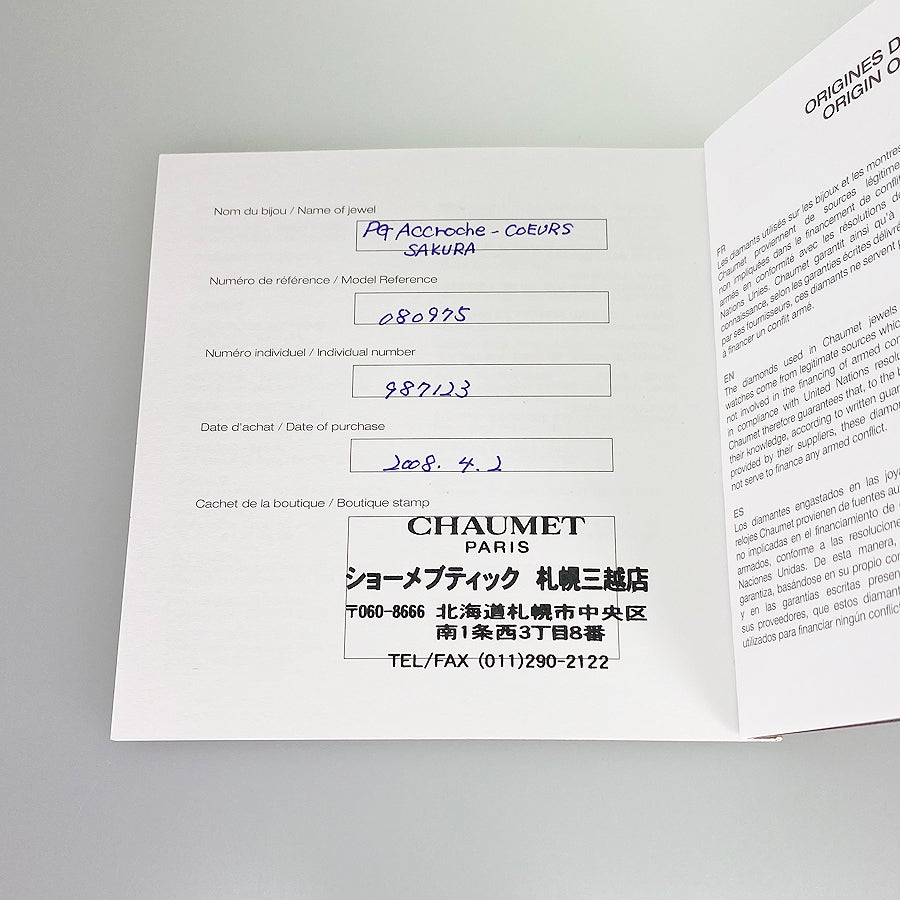 Nom du bijou / Name of jewel
Pg Accroche - COEURS
SAKURA
Numéro de référence / Model Reference
080975
Numéro individuel / Individual number
987123
Date d'achat / Date of purchase
2008. 4. 2
Cachet de la boutique / Boutique stamp
CHAUMET
PARIS
ショーメブティック 札幌三越店
〒060-8666 北海道札幌市中央区
南1条西3丁目8番
TEL/FAX (011)290-2122
ORIGINES
ORIGIN
FR
Les diamants utilisés sur les bijoux et les montres
Chaumet proviennent de sources
non impliquées dans le financement de
armés en conformité avec les résolutions
Nations Unies. Chaumet garantit ainsi qu'à
connaissance, selon les garanties écrites
par ses fournisseurs, ces diamants ne servent
à financer un conflit armé.
EN
The diamonds used in Chaumet jewels
watches come from legitimate sources
not involved in the financing of armed
in compliance with United Nations
Chaumet therefore guarantees that, to the
their knowledge, according to written
provided by their suppliers, these
not serve to finance any armed conflict.
ES
Los diamantes engastados en las
relojes Chaumet provienen de fuentes
no implicadas en el financiamiento de
armados, conforme a las
Naciones Unidas. De esta manera,
garantiza, basándose en su propio
y en las garantías escritas
sus proveedores, que estos
utilizados para financiar ningún